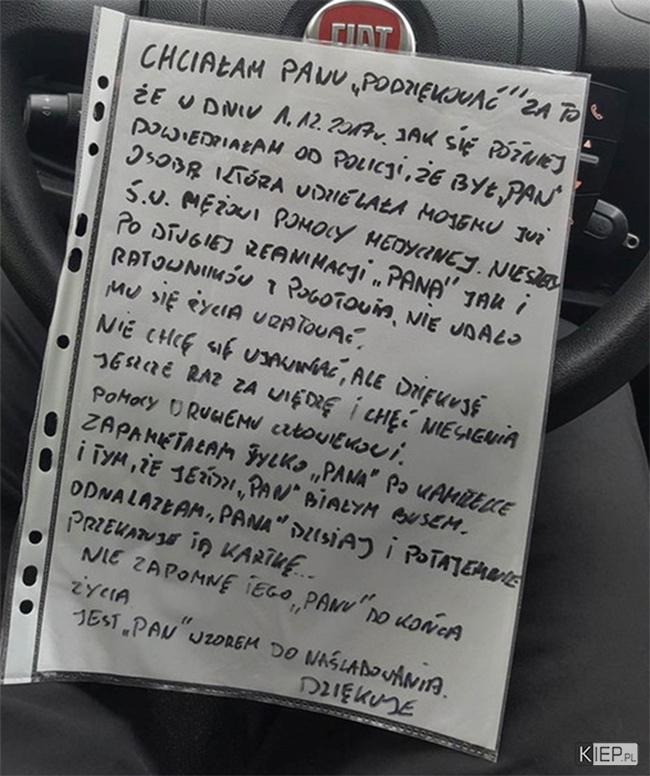 FIAT
CHCIAŁAM PANU „PODZIĘKOWAĆ”' ZA TO
ŻE W DNIU 1.12.2017r. JAK SIĘ PÓŹNIEJ
DOWIEDZIAŁAM OD POLICJI, ŻE BYŁ „PAN”
OSOBĄ KTÓRA UDZIELAŁA MOJEMU JUŻ
Ś.P. MĘŻOWI POMOCY MEDYCZNEJ. NIESTETY
PO DŁUGIEJ REANIMACJI „PANA” JAK I
RATOWNIKÓW Z POGOTOWIA, NIE UDAŁO
MU SIĘ ŻYCIA URATOWAĆ.
NIE CHCĘ SIĘ UJAWNIAĆ, ALE DZIĘKUJĘ
JESZCZE RAZ ZA WIEDZĘ I CHĘĆ NIESIENIA
POMOCY DRUGIEMU CZŁOWIEKOWI.
ZAPAMIĘTAŁAM TYLKO „PANA” PO KAMIZELCE
I TYM, ŻE JEŹDZI „PAN” BIAŁYM BUSEM.
ODNALAZŁAM „PANA” DZISIAJ I POTAJEMNIE
PRZEKAZUJĘ TĄ KARTKĘ...
NIE ZAPOMNĘ TEGO „PANU” DO KOŃCA
ŻYCIA
JEST „PAN” WZOREM DO NAŚLADOWANIA.
DZIĘKUJE
KIEP.PL